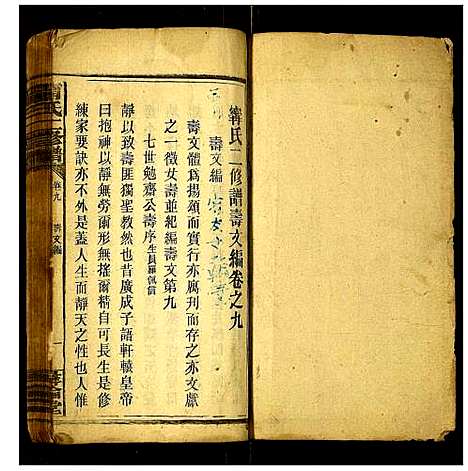 甯氏二修譜壽文編卷之九
壽文編
壽文體為揚頌而實行亦腐刊而存之亦文獻
之一徵女壽並紀編壽文第九
七世勉齋公壽序
靜以致壽匪獨聖教然也昔廣成子語軒轅皇帝
曰抱神以靜無勞爾形無搖爾精自可長生是修
練家要訣亦不外是蓋人生而靜天之性也人惟
氏二修譜
卷九
壽文編
一